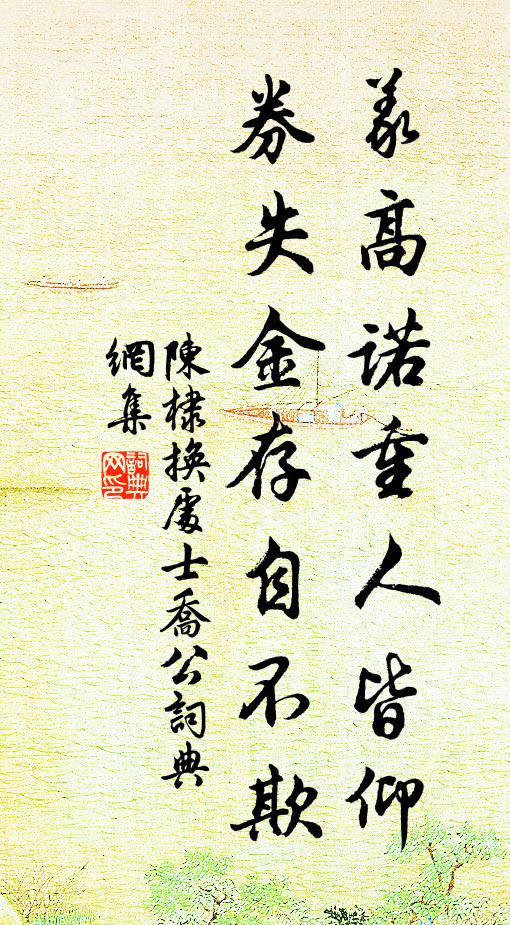 義高諾重人皆仰
券失金存自不欺
陳棣換處士喬公詞典
網集
詞典
网印